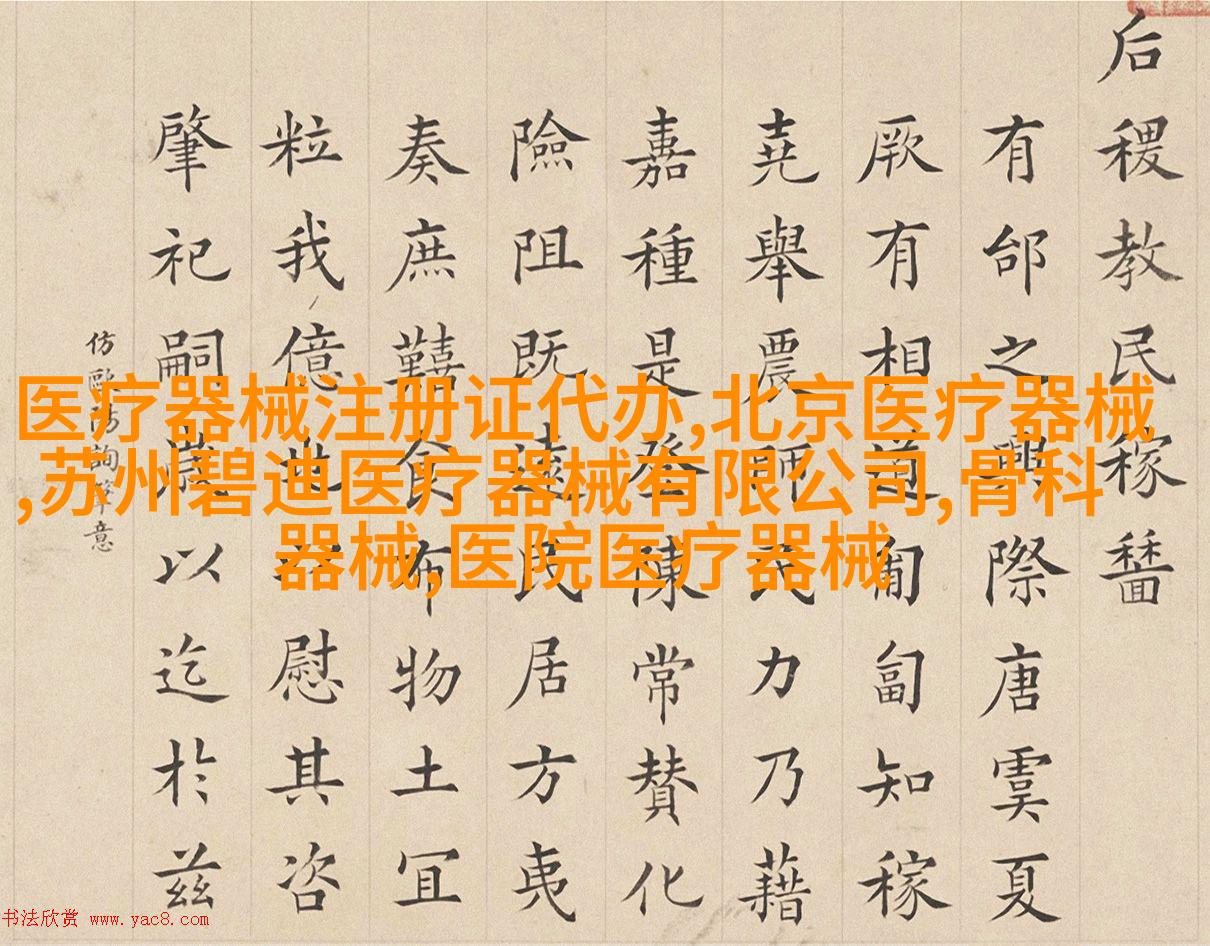 后稷教民稼穡
有邰之興際唐虞夏
厥有相道匍匐知稼
堯舉農師民力乃藉
嘉種是陳常贊化
險阻既民居方夷
奏庶囏食布物土宜
粒我億慰其咨
肇祀嗣歲以迄於兹
仿歐陽詢筆意
医疗器械注册证代办,北京医疗器械
,苏州碧迪医疗器械有限公司,骨科
器械,医院医疗器械
书法欣赏 www.yac8.com